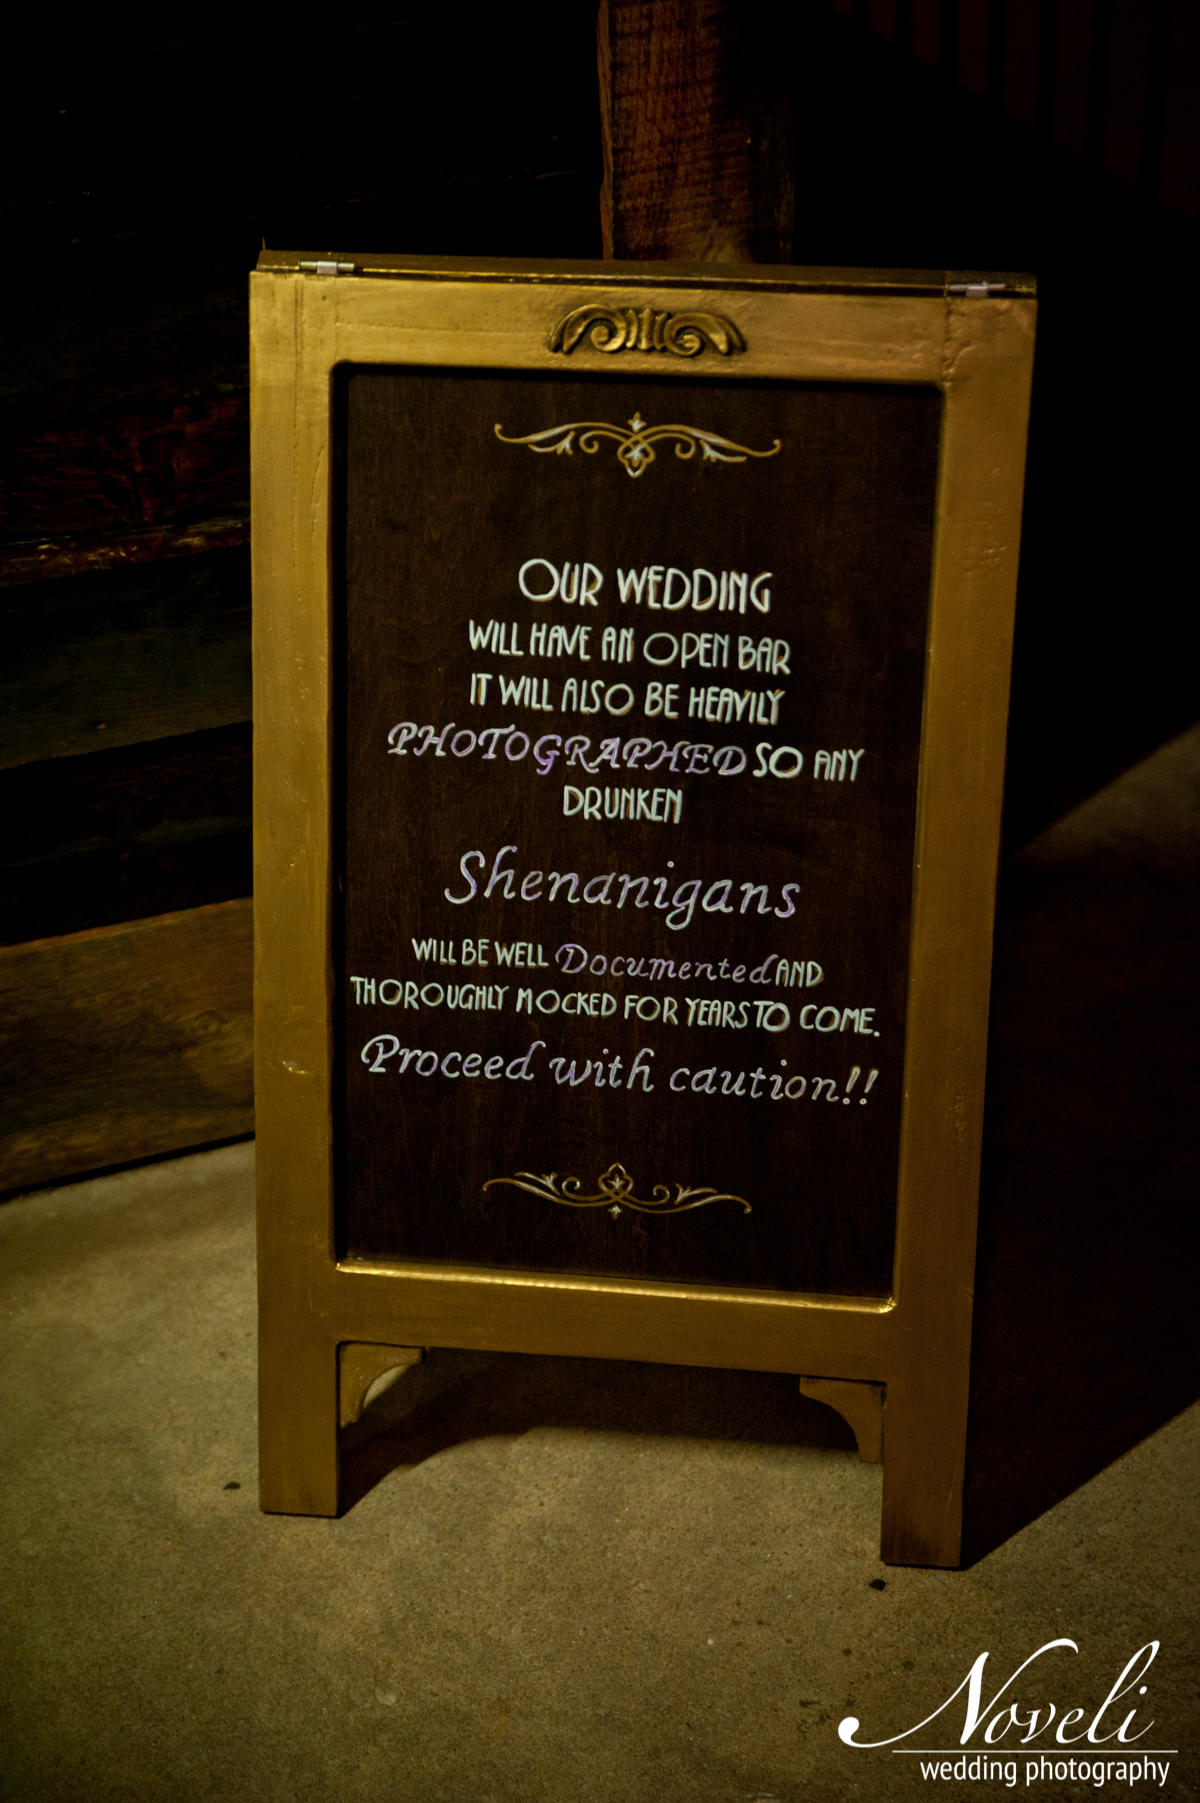 OUR WEDDING
WILL HAVE AN OPEN BAR
IT WILL ALSO BE HEAVILY
PHOTOGRAPHED SO ANY
DRUNKEN
Shenanigans
WILL BE WELL Documented AND
THOROUGHLY MOCKED FOR YEARS TO COME.
Proceed with caution!!
Noveli
wedding photography